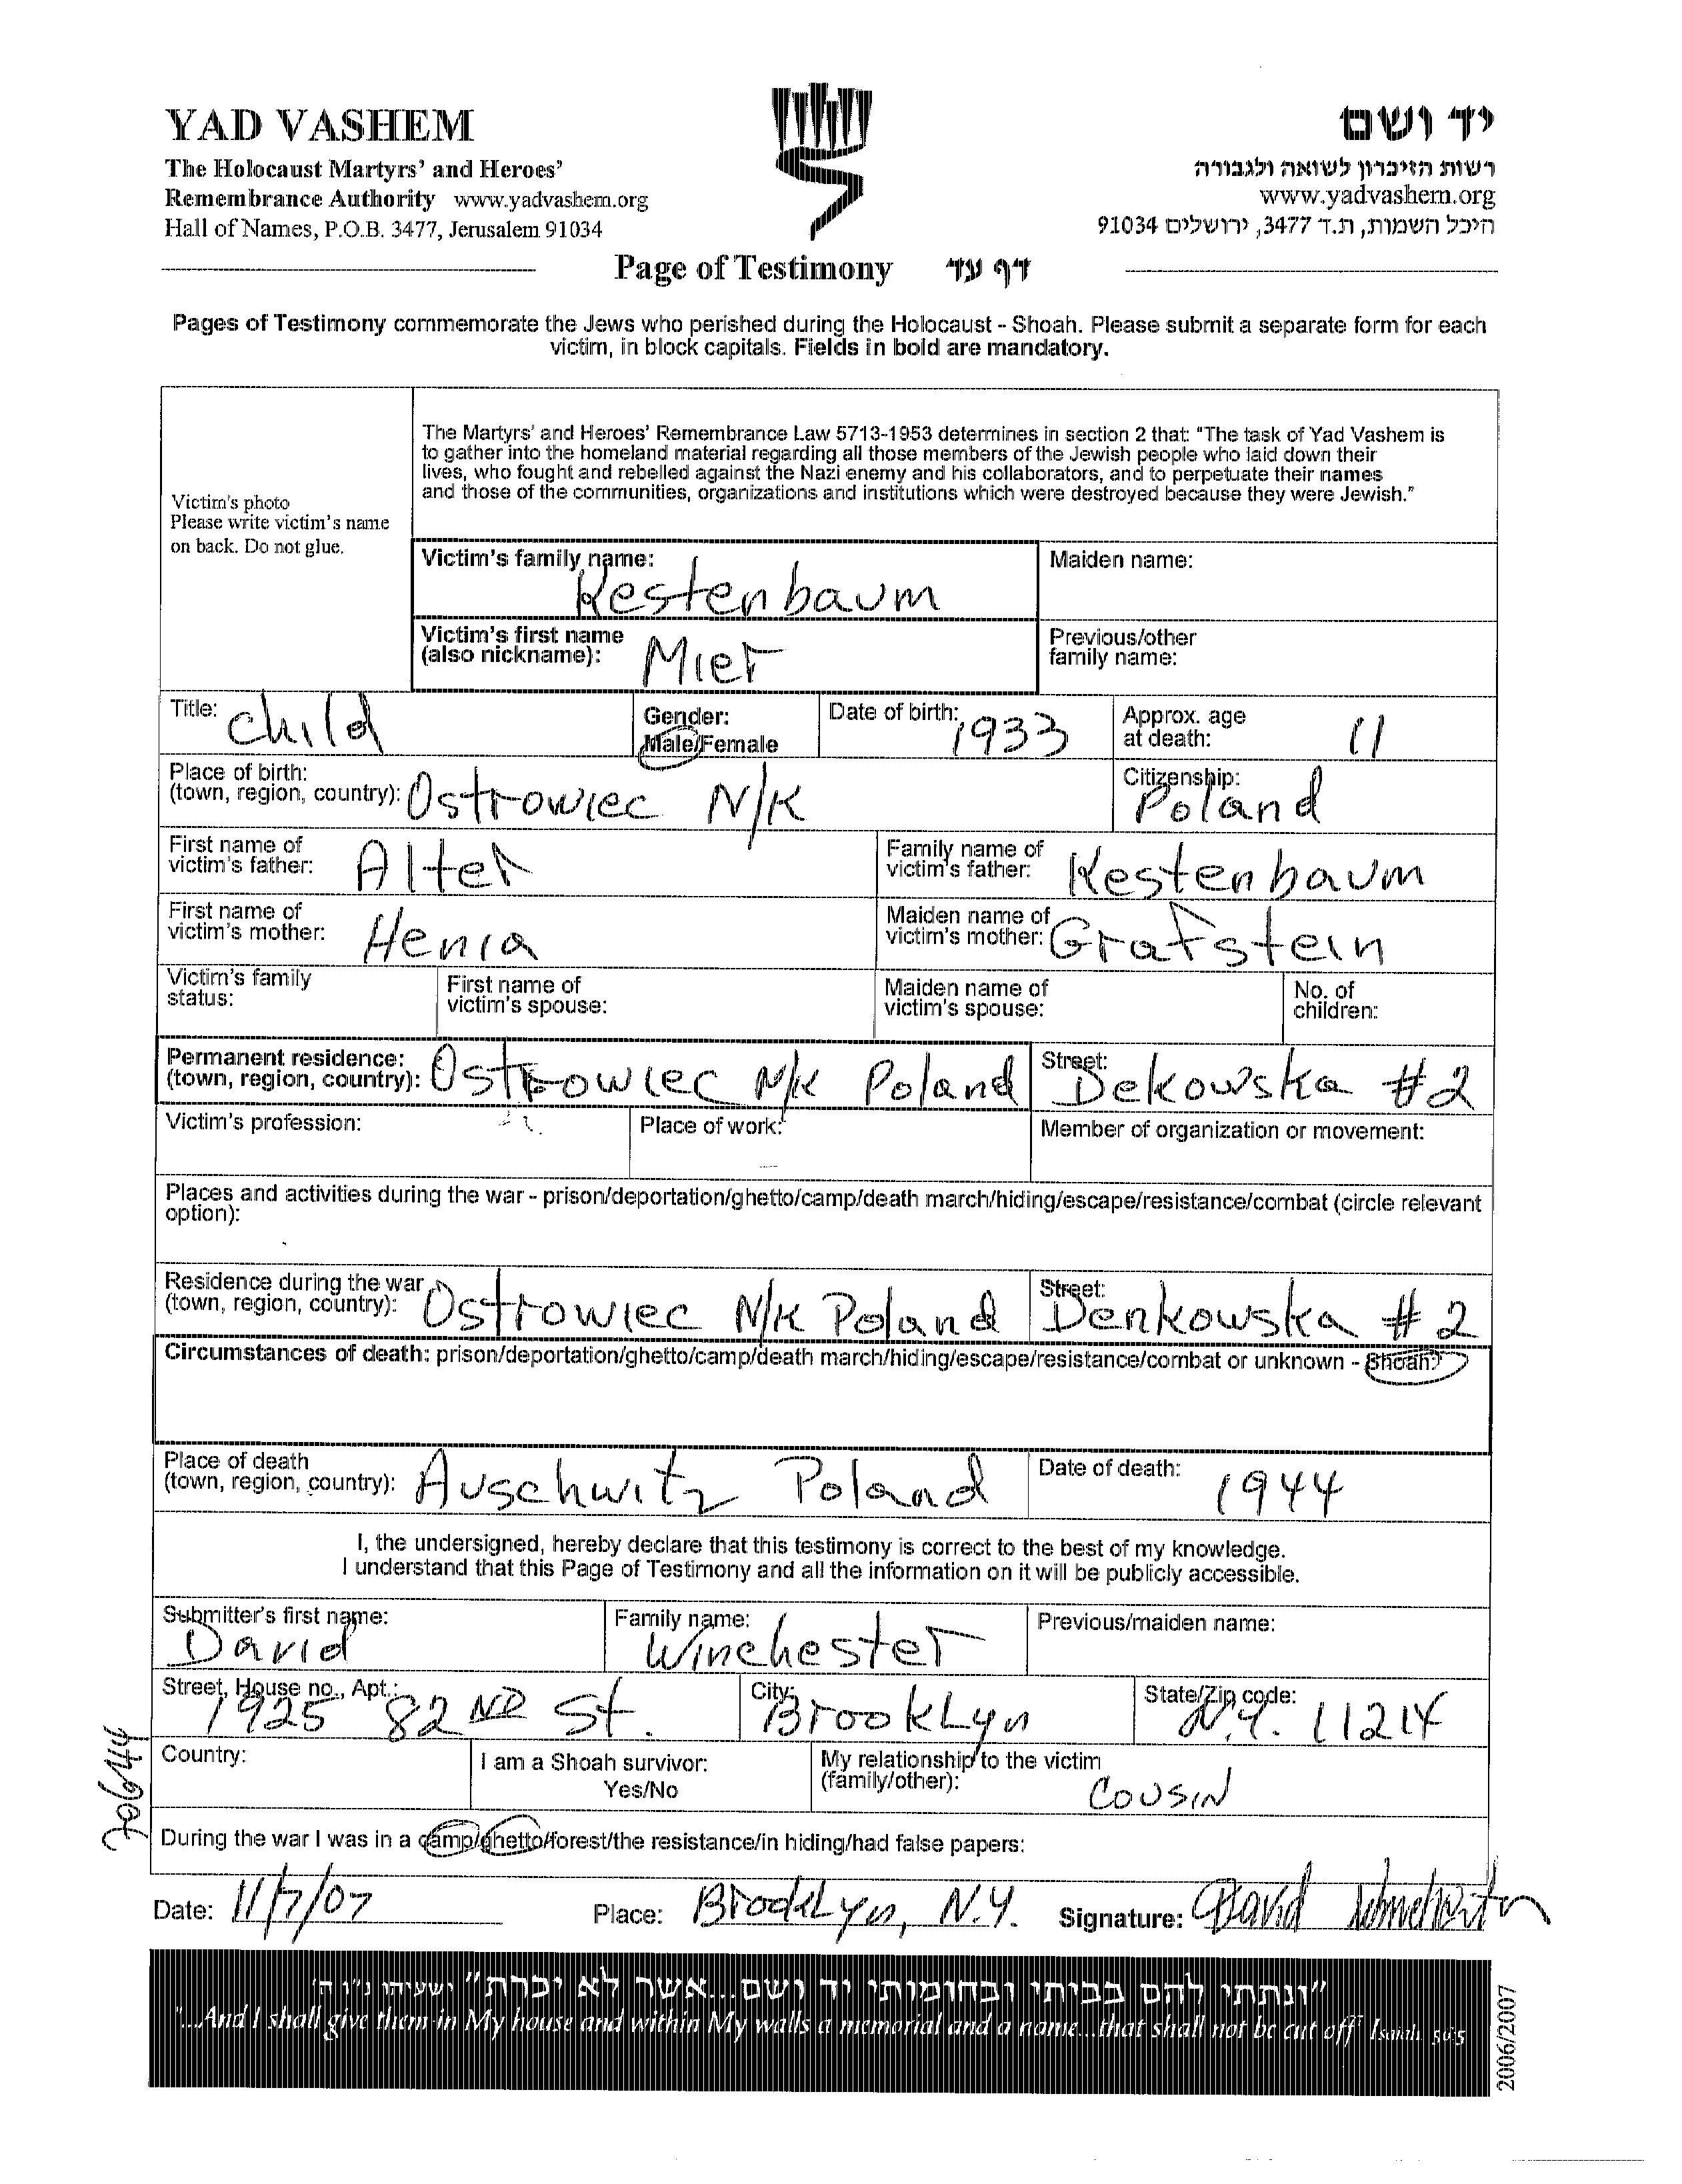 YAD VASHEM
The Holocaust Martyrs' and Heroes'
Remembrance Authority www.yadvashem.org
Hall of Names, P.O.B. 3477, Jerusalem 91034
יד ושם
רשות הזיכרון לשואה ולגבורה
www.yadvashem.org
היכל השמות, ת.ד 3477, ירושלים 91034
Page of Testimony דף עד
Pages of Testimony commemorate the Jews who perished during the Holocaust - Shoah. Please submit a separate form for each
victim, in block capitals. Fields in bold are mandatory.
Victim's photo
Please write victim's name
on back. Do not glue.
The Martyrs' and Heroes' Remembrance Law 5713-1953 determines in section 2 that: "The task of Yad Vashem is
to gather into the homeland material regarding all those members of the Jewish people who laid down their
lives, who fought and rebelled against the Nazi enemy and his collaborators, and to perpetuate their names
and those of the communities, organizations and institutions which were destroyed because they were Jewish."
Victim's family name: Kestenbaum
Maiden name:
Victim's first name
(also nickname): Mier
Previous/other
family name:
Title: child
Gender:
Male/Female
Date of birth: 1933
Approx. age
at death: 11
Place of birth:
(town, region, country): Ostrowiec N/K
Citizenship:
Poland
First name of
victim's father: Alter
Family name of
victim's father: Kestenbaum
First name of
victim's mother: Henia
Maiden name of
victim's mother: Grafstein
Victim's family
status:
First name of
victim's spouse:
Maiden name of
victim's spouse:
No. of
children:
Permanent residence:
(town, region, country): Ostrowiec N/K Poland
Street:
Dekowska #2
Victim's profession:
Place of work:
Member of organization or movement:
Places and activities during the war - prison/deportation/ghetto/camp/death march/hiding/escape/resistance/combat (circle relevant
option):
Residence during the war
(town, region, country): Ostrowiec N/K Poland
Street:
Denkowska #2
Circumstances of death: prison/deportation/ghetto/camp/death march/hiding/escape/resistance/combat or unknown - Shoah?
Place of death
(town, region, country): Auschwitz Poland
Date of death: 1944
I, the undersigned, hereby declare that this testimony is correct to the best of my knowledge.
I understand that this Page of Testimony and all the information on it will be publicly accessible.
Submitter's first name:
David
Family name:
Winchester
Previous/maiden name:
Street, House no., Apt.:
1925 82 ND St.
City:
Brooklyn
State/Zip code:
N.Y. 11214
Country:
I am a Shoah survivor:
Yes/No
My relationship to the victim
(family/other): COUSIN
During the war I was in a camp/ghetto/forest/the resistance/in hiding/had false papers:
Date: 11/7/07
Place: Brooklyn, N.Y.
Signature: David
"ונתתי להם בביתי ובחומותי יד ושם...אשר לא יכרת" ישעיהו נ"ו ה'
"...And I shall give them in My house and within My walls a memorial and a name...that shall not be cut off" Isaiah 56:5
2006/2007